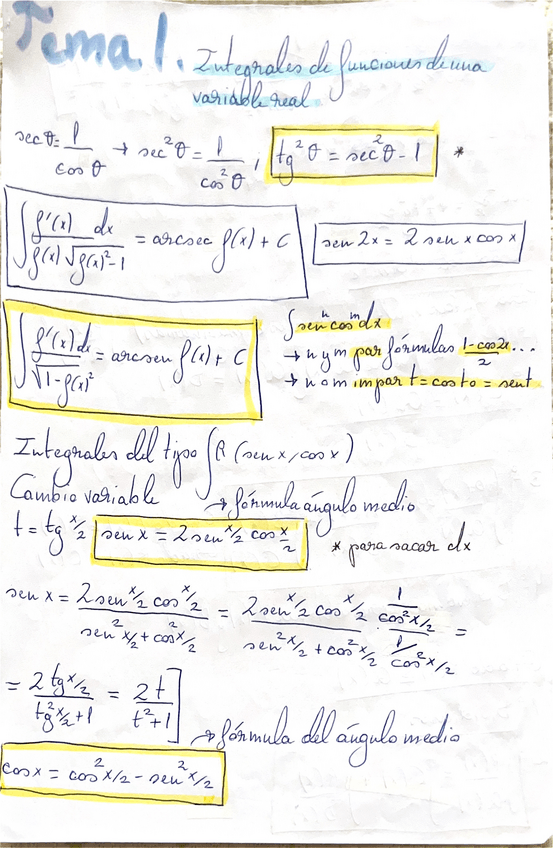 Tema 1. Integrales de funciones de una
variable real.
sec θ = 1/cos θ → sec²θ = 1/cos²θ ; tg²θ = sec²θ - 1 *
∫ f'(x) dx / f(x) √f(x)²-1 = arcsec f(x) + C
sen 2x = 2 sen x cos x
∫ f'(x) dx / √1-f(x)² = arcsen f(x) + C
∫ senⁿ cosᵐ dx
→ n y m par fórmulas 1-cos2x/2 ...
→ n o m impar t = cos t o = sen t
Integrales del tipo ∫ R (sen x, cos x)
Cambio variable → fórmula ángulo medio
t = tg x/2 sen x = 2 sen x/2 cos x/2 * para sacar dx
sen x = 2 sen x/2 cos x/2 / sen² x/2 + cos² x/2 = 2 sen x/2 cos x/2 / sen² x/2 + cos² x/2 · 1/cos² x/2 / 1/cos² x/2 =
= 2 tg x/2 / tg² x/2 + 1 = 2t / t² + 1 ]
→ fórmula del ángulo medio
cos x = cos² x/2 - sen² x/2